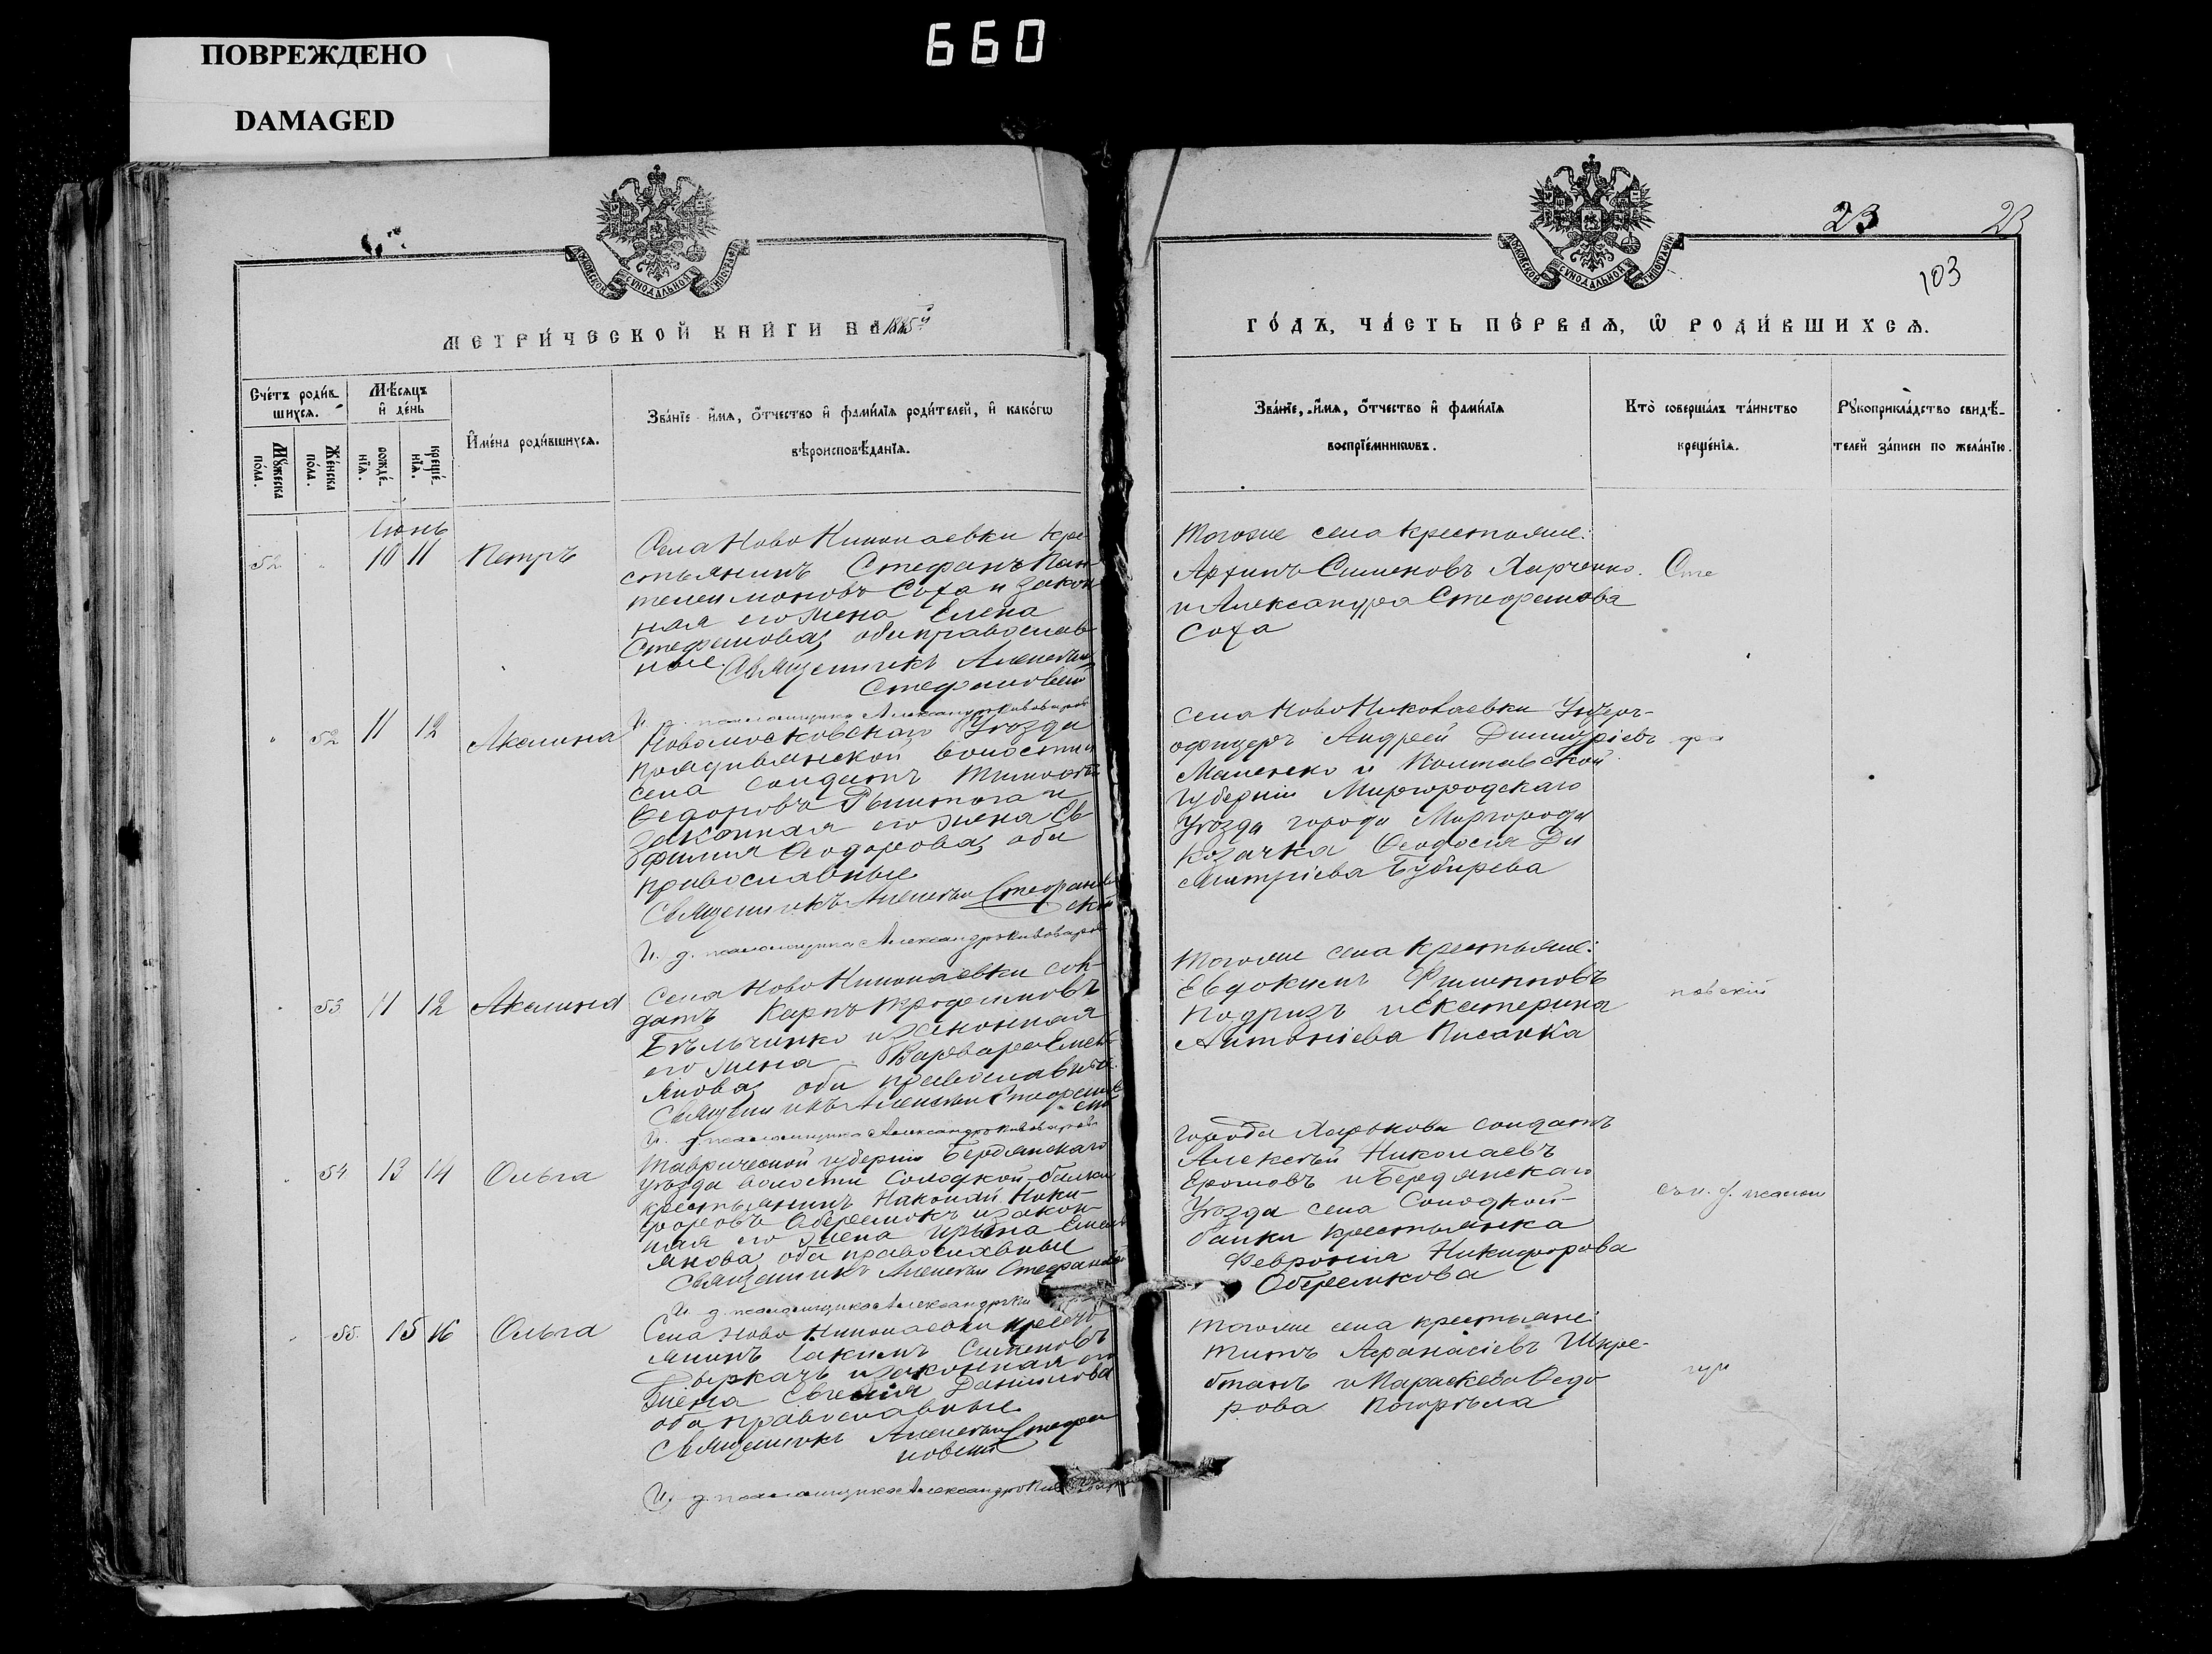 ПОВРЕЖДЕНО
DAMAGED
660
МОСКОВСКОЙ СѴНОДАЛЬНОЙ ТИПОГРАФІИ
МЕТРИ́ЧЕСКОЙ КНИ́ГИ НА 1885й
Сче́тъ роди́в
шихсѧ.
Мѣ́сѧцъ
и҆ де́нь
Му́жеска
по́ла.
Же́нска
по́ла.
рожде́
нїѧ.
креще́
нїѧ.
И҆мена̀ роди́вшихсѧ.
Зва́нїе и҆́мѧ, ѻ҆́тчество и҆ фами́лїѧ роди́телей, и҆ како́гѡ
вѣроисповѣ́данїѧ.
Іюнь
52 " 10 11 Петръ
Села Ново Николаевки кре
стьянинъ Стефанъ Пан
телеимоновъ Соха и закон
ная его жена Елена
Стефанова, оба православ
ные. Священникъ Алексѣй
Стефановскій
И. д. псаломщика Александръ Пивоваров
" 52 11 12 Акилина
Новомосковскаго Уѣзда
волости
села солдатъ Тимофей
Ѳедоровъ и
законная его жена Ев
фимія Ѳеодорова, оба
православные
Священникъ Алексѣй Стефанов
скій
И. д. псаломщика Александръ Пивоваров
" 53 11 12 Акилина
Села Ново Николаевки сол-
датъ Карпъ Трофимовъ
Бѣльченко и законная
его жена Варвара Емель
янова, оба православные.
Священникъ Алексѣй Стефанов
скій
И. д. псаломщика Александръ Пивоваровъ
" 54 13 14 Ольга
Таврической губерніи Бердянскаго
уѣзда волости Солодкой-балки
крестьянинъ Наколай Ники-
форовъ Оберемокъ и закон-
ная его жена Ирина Емель
янова, оба православные
Священникъ Алексѣй Стефановс
И. д. псаломщика Александръ Пи
" 55. 15 16 Ольга
Села Ново Николаевки кресть
янинъ Іакимъ Симеоновъ
Дыркачъ и законная его
жена Евгенія Даниилова
оба православные
Священникъ Алексѣй Стефа
новскій
И. д. псаломщика Александръ Пив
23 23
103
МОСКОВСКОЙ СѴНОДАЛЬНОЙ ТИПОГРАФІИ
ГО́ДЪ, ЧА́СТЬ ПЕ́РВАѦ, Ѽ РОДИ́ВШИХСѦ.
Зва́нїе, и҆́мѧ, ѻ҆́тчество и҆ фами́лїѧ
воспрїе́мникѡвъ.
Кто̀ соверша́лъ та́инство
креще́нїѧ.
Рꙋкоприкла́дство свидѣ́-
телей за́писи по жела́нїю.
Тогоже села крестьяне:
Архипъ Симеоновъ Харченко. Сте
и Александра Стефанова
Соха
Села Ново Николаевки Унтеръ-
офицеръ Андрей Димитріевъ фа
Маненко и Полтавской
Губерніи Миргородскаго
Уѣзда города Миргорода
Козачка Ѳеодосія Ди
митріева Бубырева
Тогоже села крестьяне:
Евдокимъ Филипповъ
Подризъ и Екатерина новскій
Антоніева Писанка
Города Харькова солдатъ
Алексѣй Николаевъ
Ерошовъ и Бердянскаго
Уѣзда села Солодкой- съ и. д. псалом
балки крестьянка
Февронія Никифорова
Оберемкова
Тогоже села крестьяне:
Титъ Аѳанасіевъ Шкре-
бтанъ и Параскева Ѳедо
рова Погорѣла